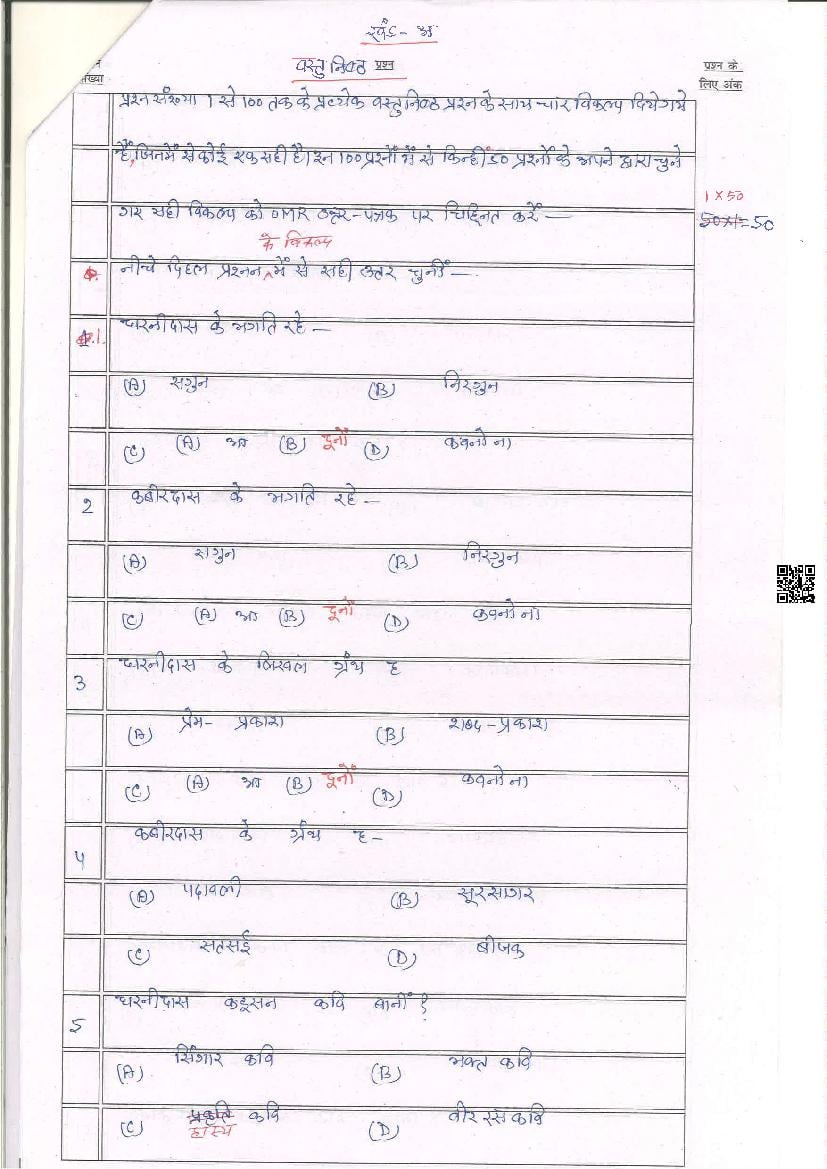 खंड - अ
वस्तुनिष्ठ प्रश्न
संख्या
प्रश्न के
लिए अंक
प्रश्न संख्या 1 से 100 तक के प्रत्येक वस्तुनिष्ठ प्रश्न के साथ चार विकल्प दिये गये
हैं, जिनमें से कोई एक सही है। इन 100 प्रश्नों में से किन्हीं 50 प्रश्नों के अपने द्वारा चुने
गए सही विकल्प को OMR उत्तर-पत्रक पर चिह्नित करें —
1 × 50
50×1=50
के विकल्प
नीचे दिहल प्रश्नन में से सही उत्तर चुनीं —
1. धरनीदास के भगति रहे —
(A) सगुन (B) निरगुन
(C) (A) आ (B) दूनों (D) कवनो ना
2 कबीरदास के भगति रहे —
(A) सगुन (B) निरगुन
(C) (A) आ (B) दूनों (D) कवनो ना
3 धरनीदास के लिखल ग्रंथ ह
(A) प्रेम - प्रकाश (B) शब्द - प्रकाश
(C) (A) आ (B) दूनों (D) कवनो ना
4 कबीरदास के ग्रंथ ह —
(A) पदावली (B) सूरसागर
(C) सतसई (D) बीजक
5 धरनीदास कइसन कवि बानीं ?
(A) सिंगार कवि (B) भक्त कवि
(C) प्रकृति कवि (D) वीर रस कवि
हास्य